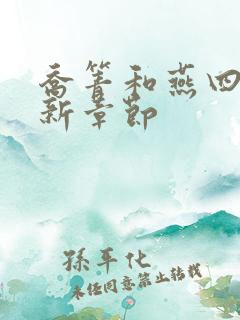 喬箐和燕四
新章節
孫平化
未經同意禁止轉載